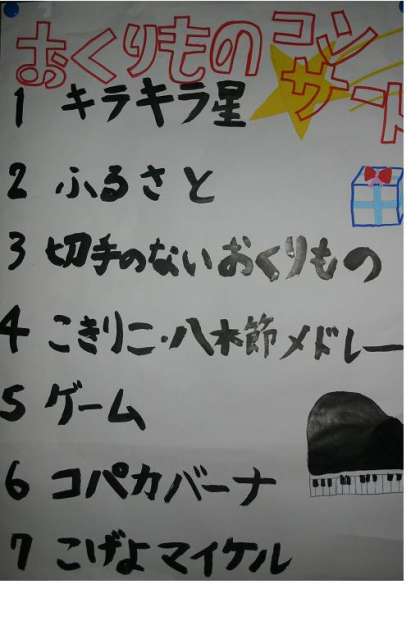 おくりものコンサート
1 キラキラ星
2 ふるさと
3 切手のないおくりもの
4 こきりこ・八木節メドレー
5 ゲーム
6 コパカバーナ
7 こげよマイケル